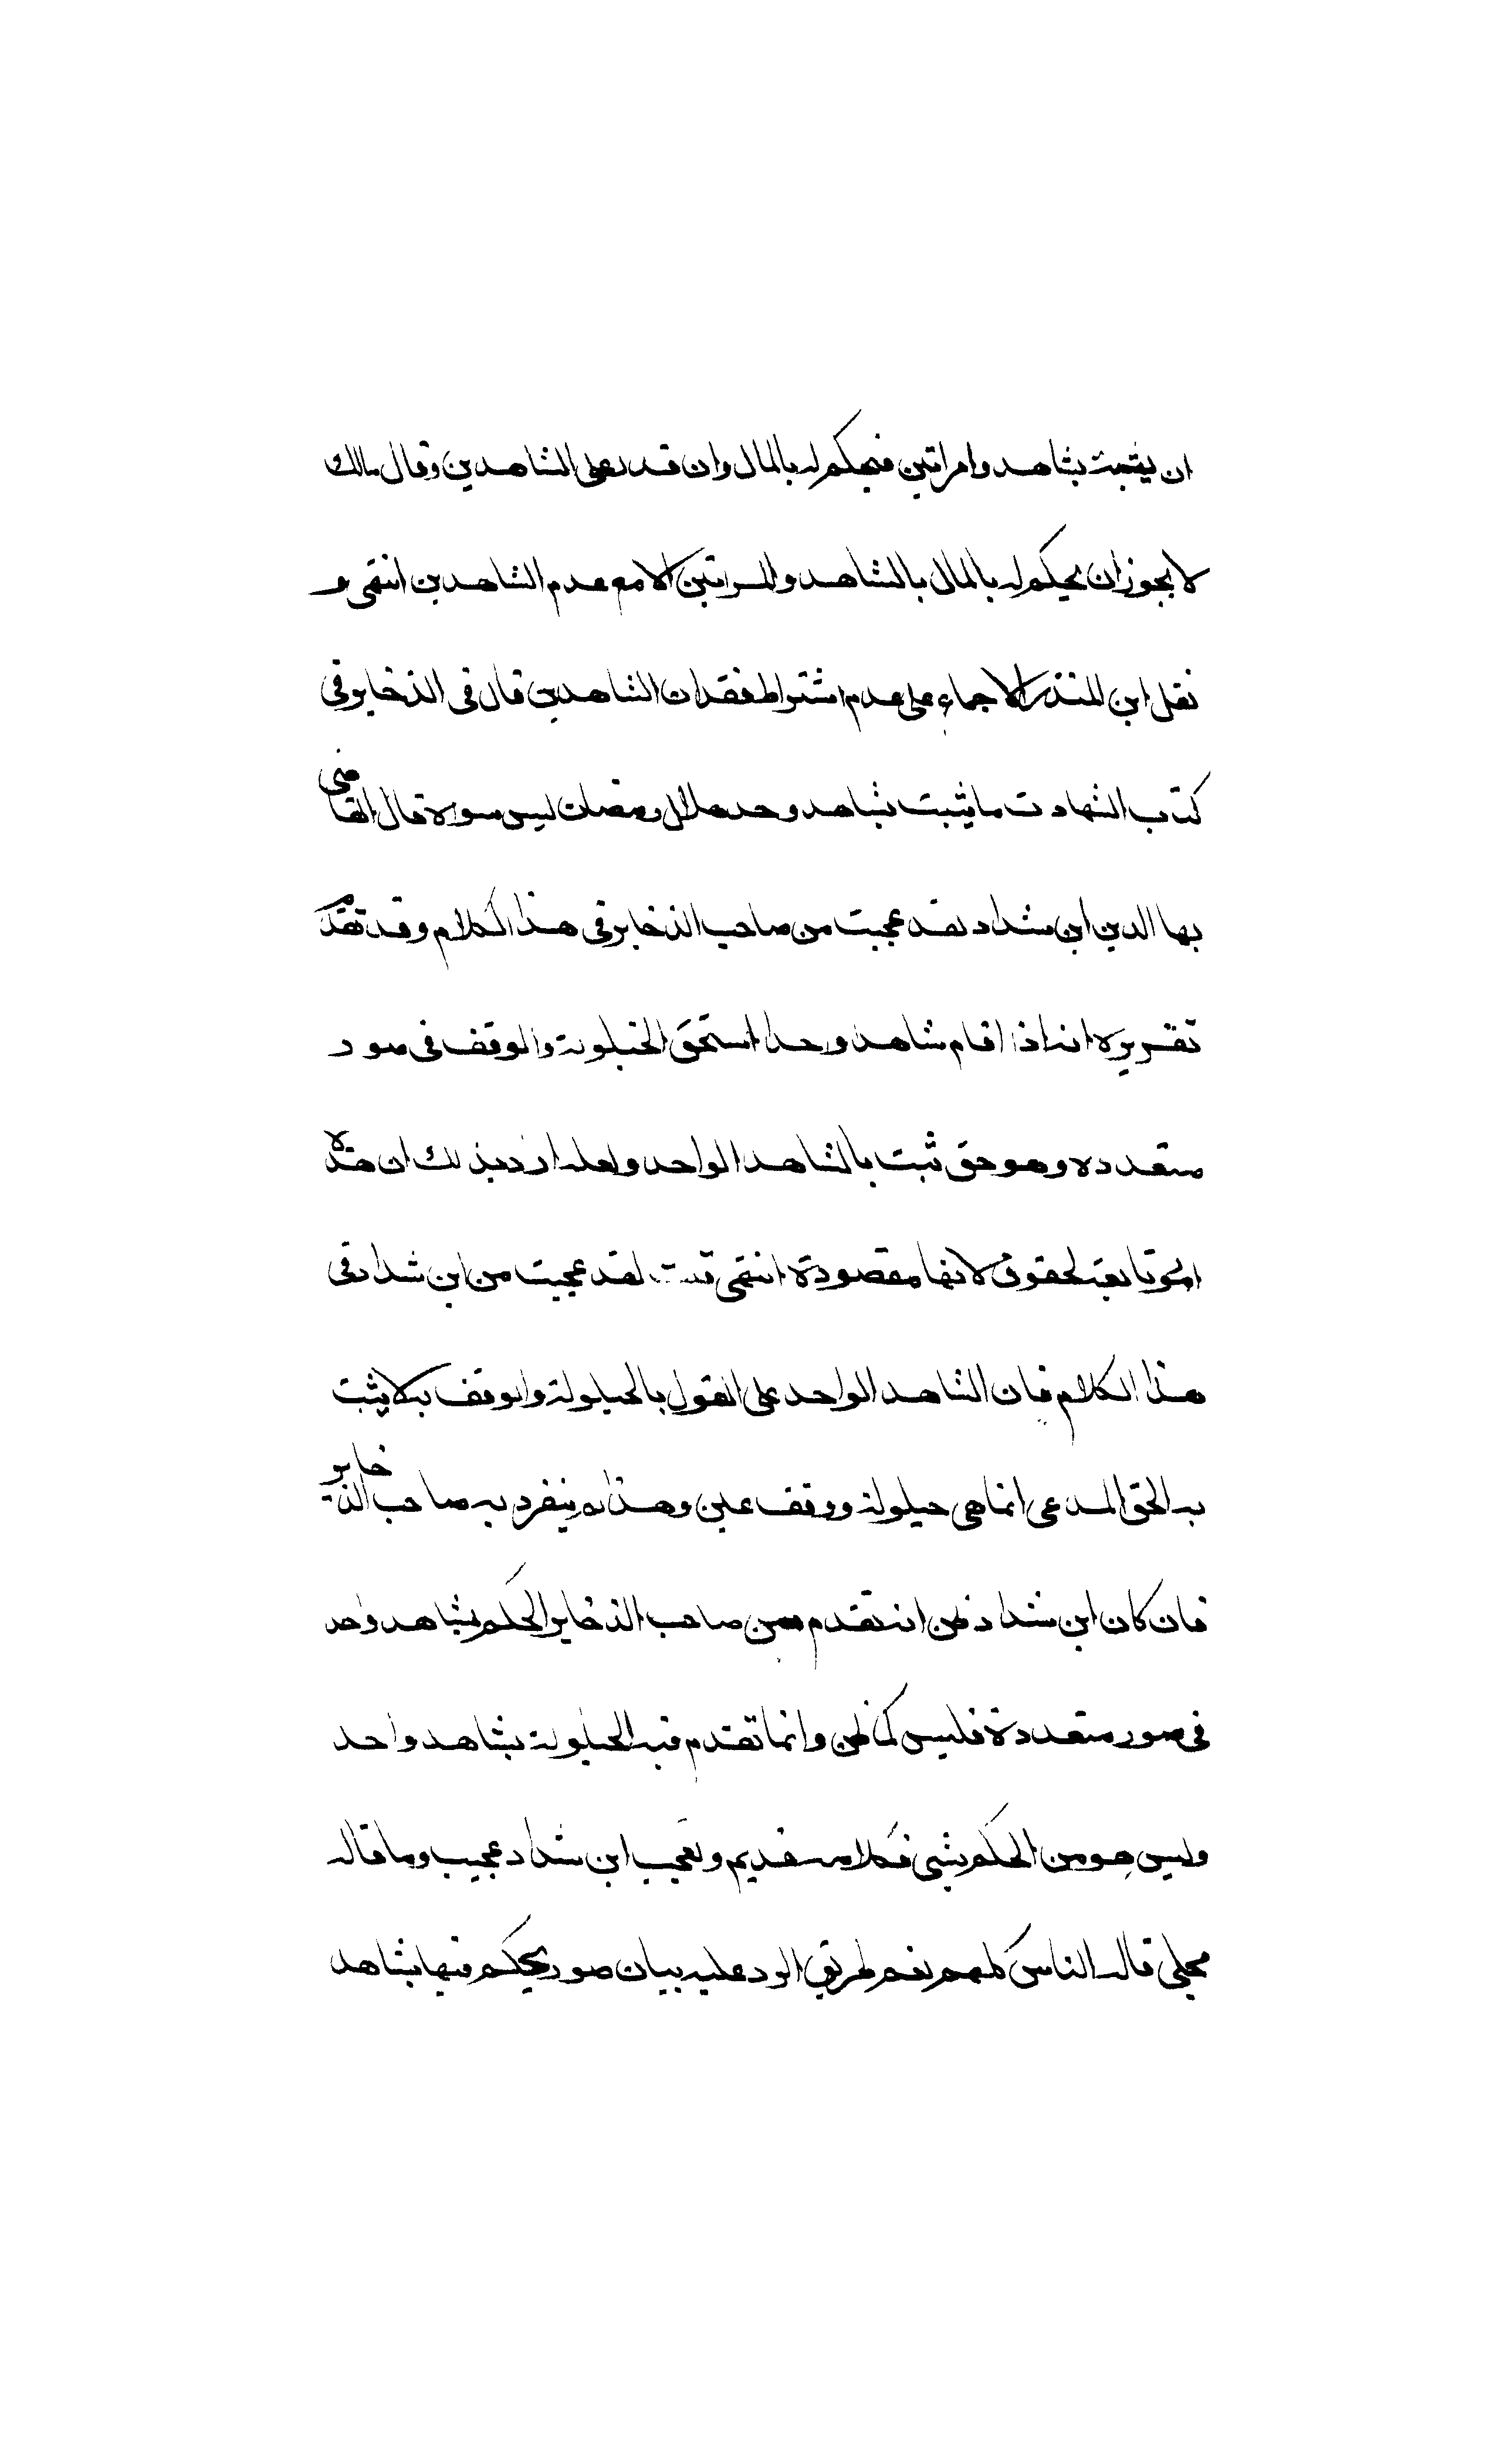 ان يثبت بشاهد وامراتين فيحكم له بالمال وان قدر على الشاهدين وقال مالك
لا يجوز ان يحكم له بالمال بالشاهد والمراتين الا مع عدم الشاهدين انتهى و
نقل ابن المنذر الاجماع على عدم اشتراط فقدان الشاهدين قال في الذخاير في
كتاب الشهادت ما يثبت بشاهد وحد هلال رمضان ليس سواه قال القاضى
بها الدين ابن شداد لقد عجبت من صاحب الذخاير في هذا الكلام وقد تقدم
تقريره انه اذا اقام شاهدا وحدا استحق الحيلولة والوقف في صور
متعدده وهو حق ثبت بالشاهد الواحد ولعله اراد بذلك ان هذه
امور تابعة لحقوق لا انها مقصودة انتهى قلت لقد عجبت من ابن شداد في
هذا الكلام فان الشاهد الواحد على القول بالحيلولة والوقف به لا يثبت
به الحق المدعى انما هى حيلولة ووقف عين وهذا لم ينفرد به صاحب الذخاير
فان كان ابن شداد ظن انه تقدم من صاحب الذخاير الحكم بشاهد واحد
في صور متعددة فليس كما ظن وانما تقدم فيه الحيلولة بشاهد واحد
وليس هو من الحكم بشي فكلامه سقديم وتعجب ابن شداد عجيب وما قاله
مجلي قاله الناس كلهم نعم طريق الرد عليه ببيان صور يحكم فيها بشاهد